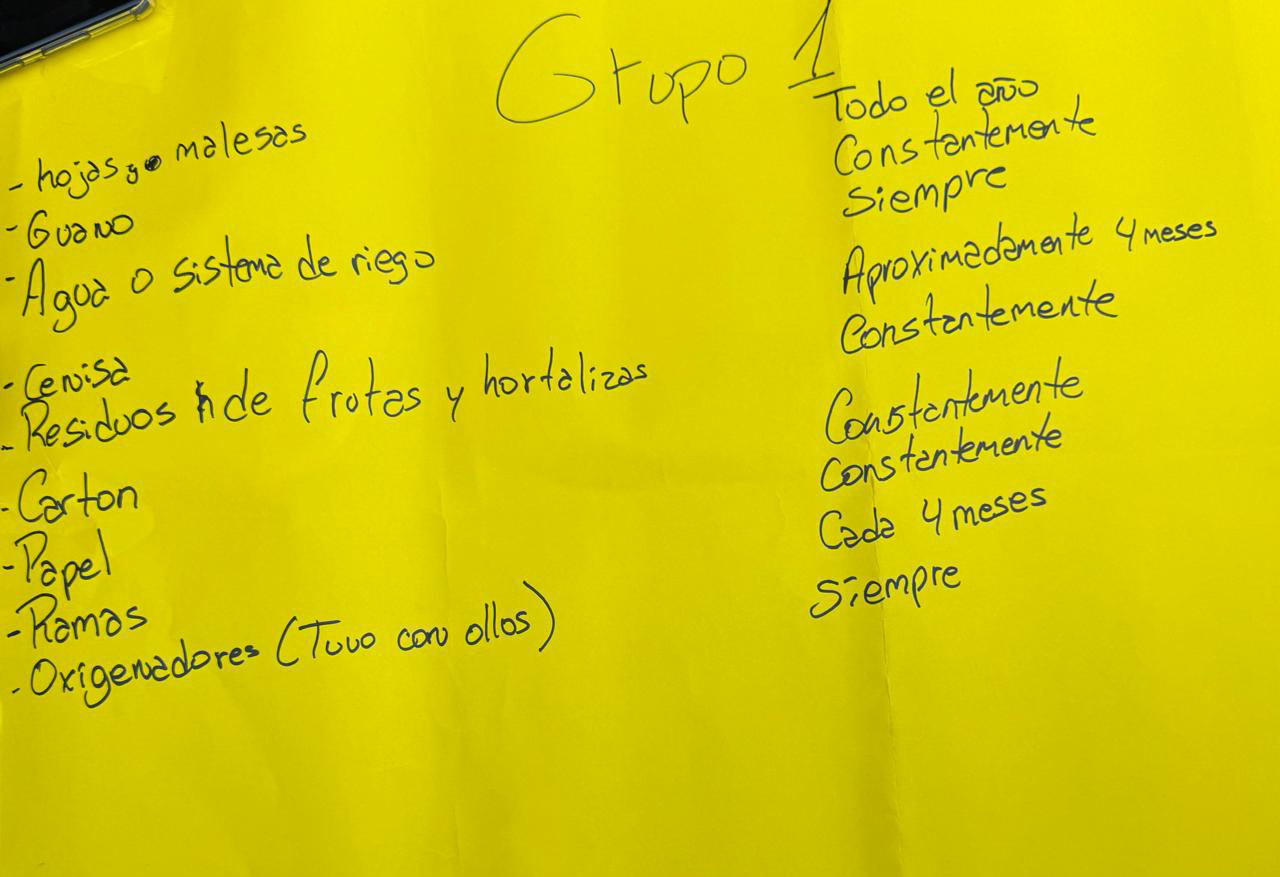 Grupo 1
- hojas y malesas
- Guano
- Agua o sistema de riego
- Cenisa
- Residuos de frutas y hortalizas
- Carton
- Papel
- Ramas
- Oxigenadores (Tuvo con ollos)
Todo el año
Constantemente
Siempre
Aproximadamente 4 meses
Constantemente
Constantemente
Constantemente
Cada 4 meses
Siempre